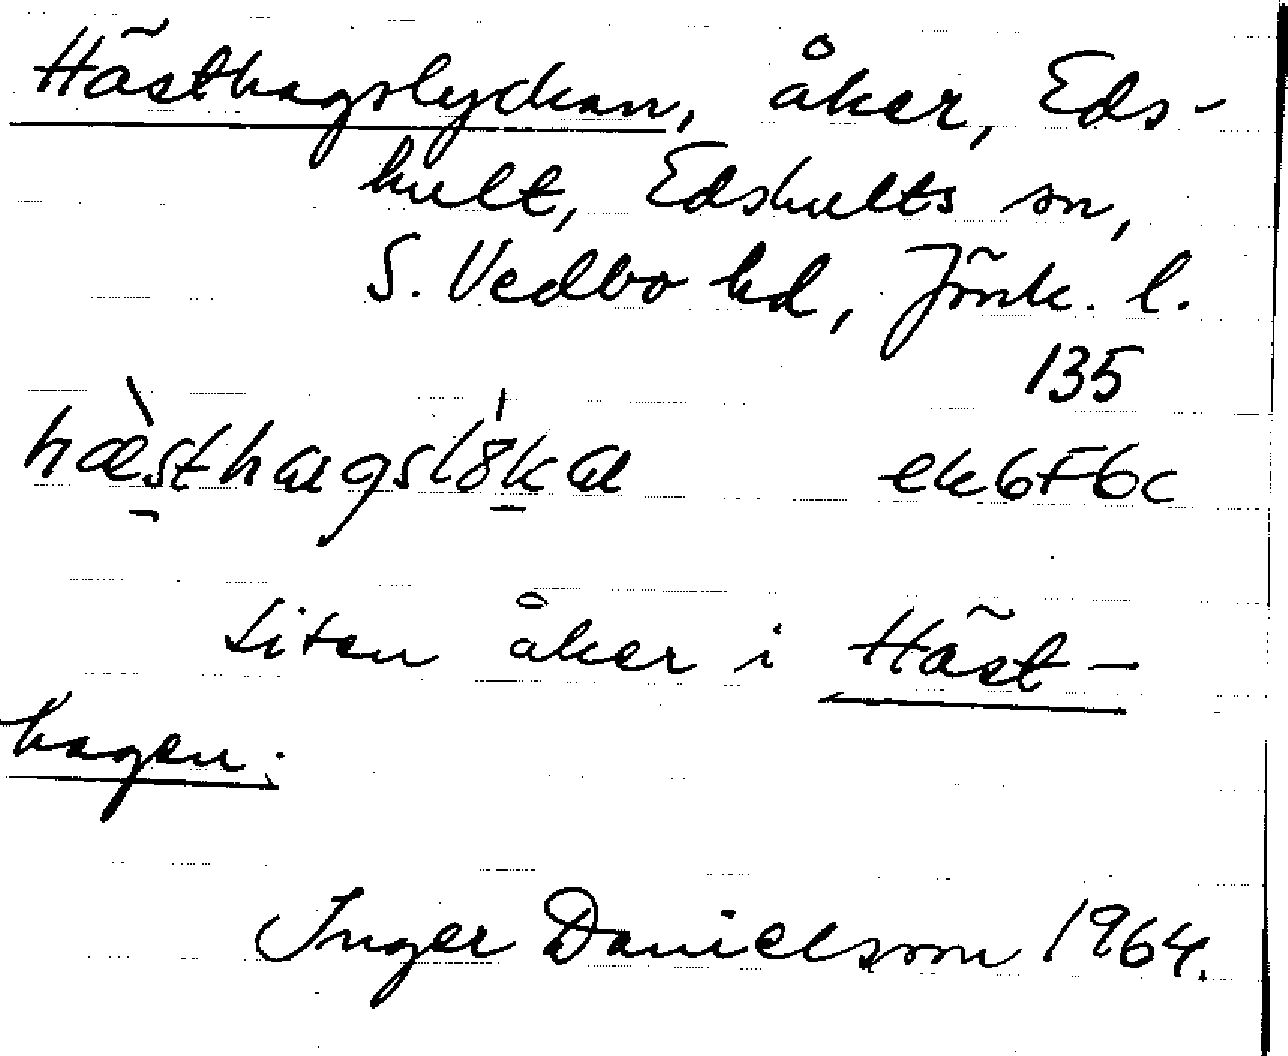 Hästhagslyckan, åker, Eds-
hult, Edshults sn,
S. Vedbo hd, Jönk. l.
135
hæ̀sthagslö́ka ek6f6c
Liten åker i Häst-
hagen.
Inger Danielsson 1964.